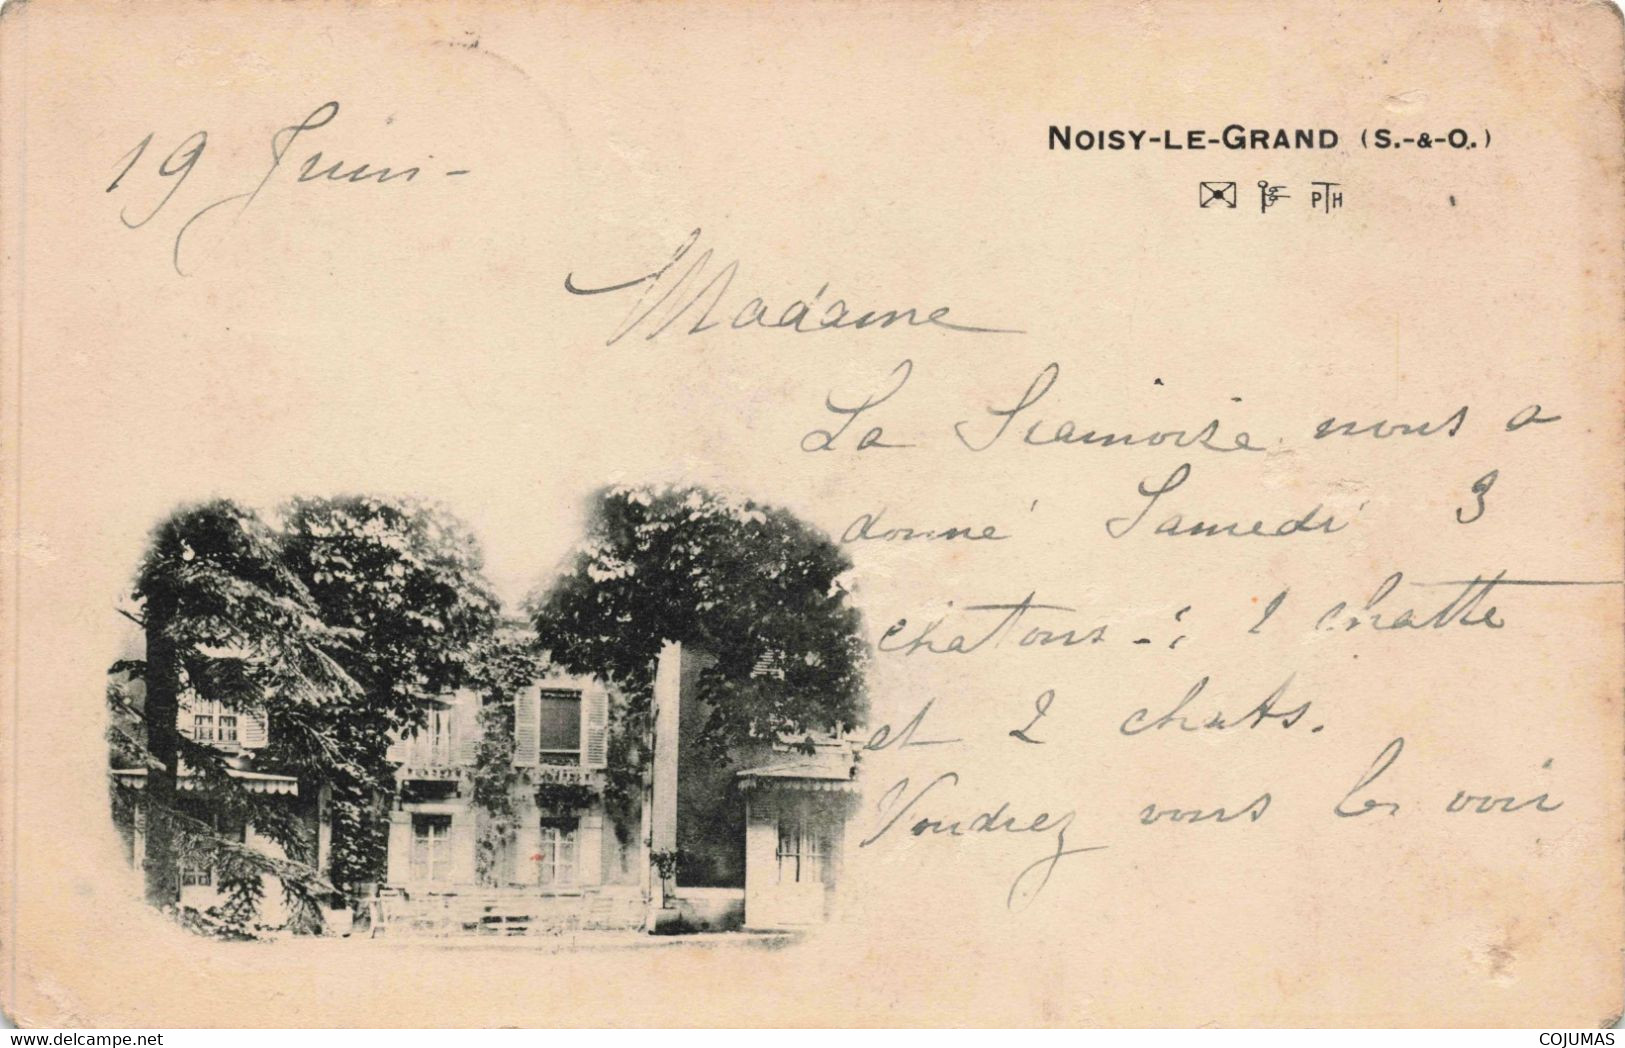 19 Juin -
NOISY-LE-GRAND (S.-&-O.)
PTH
Madame
La Siamoise nous a
donné Samedi 3
chatons -: 1 chatte
et 2 chats.
Voudrez vous les voir
www.delcampe.net
COJUMAS